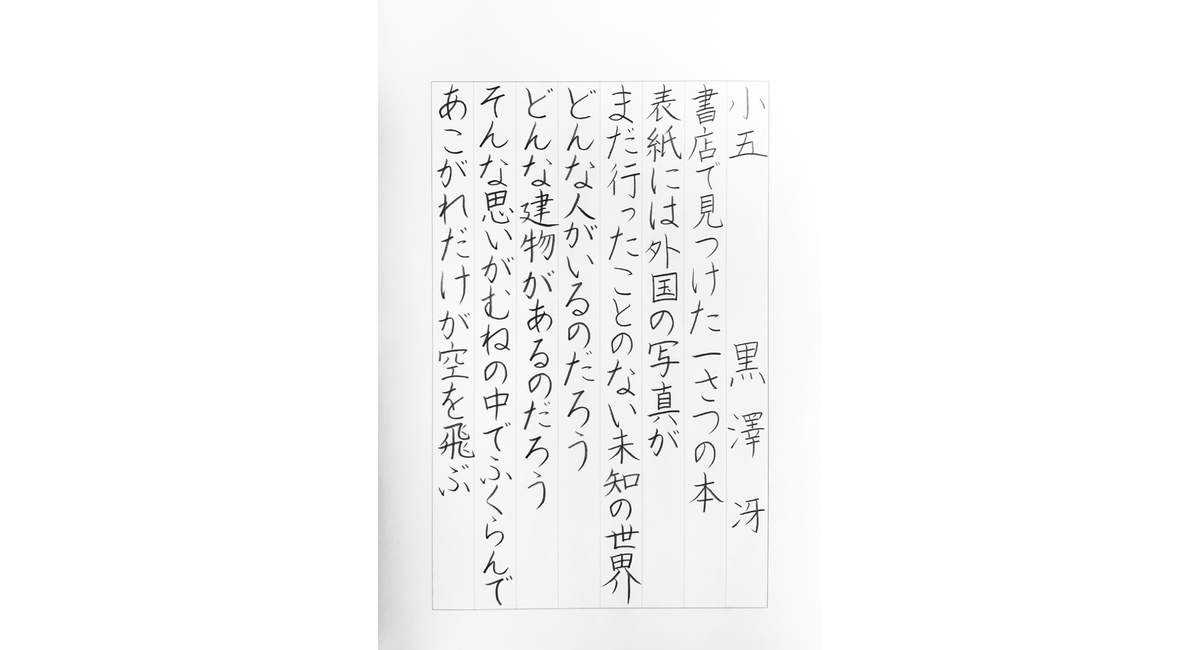 小五 黒澤 冴
書店で見つけた一さつの本
表紙には外国の写真が
まだ行ったことのない未知の世界
どんな人がいるのだろう
どんな建物があるのだろう
そんな思いがむねの中でふくらんで
あこがれだけが空を飛ぶ